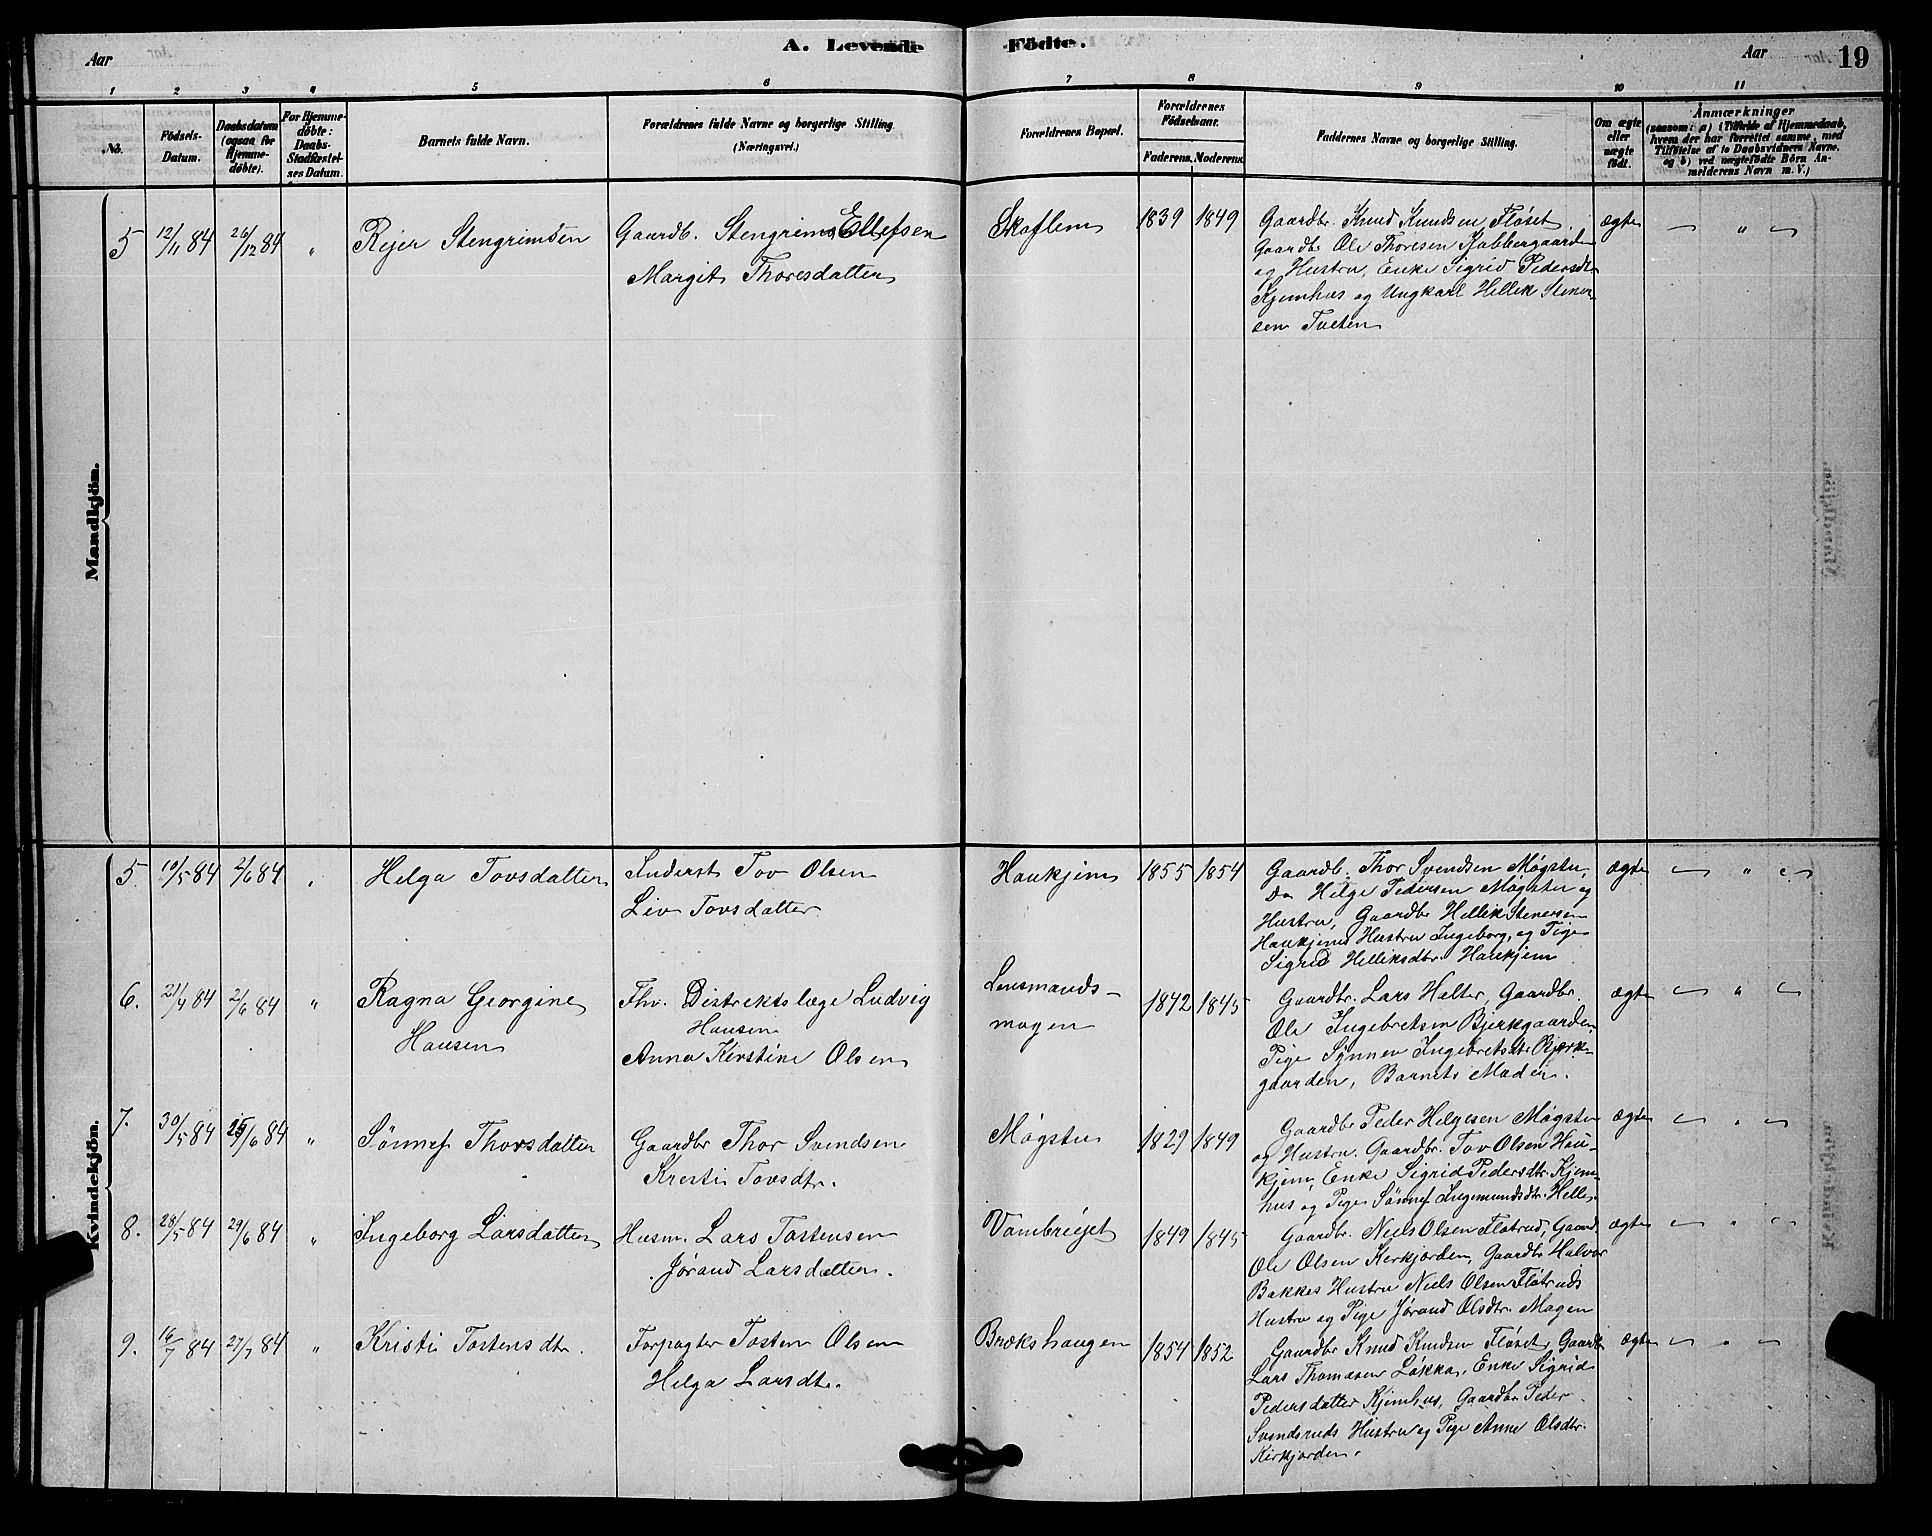 A. Levende
Födte.
Aar
Aar
19
1 2 3 4 5 6 7 8 9 10 11
No.
Födsels-
Datum.
Daabsdatum
(ogsaa for
Hjemme-
döbte).
For Hjemme-
döbte:
Daabs-
Stadfæstel-
ses Datum.
Barnets fulde Navn.
Forældrenes fulde Navne og borgerlige Stilling
(Næringsvei.)
Forældrenes Bopæl.
Forældrenes
Födselsaar.
Faderens. Moderens.
Faddernes Navne og borgerlige Stilling.
Om ægte
eller
uægte
födt.
Anmærkninger
(saasom: a) i Tilfælde af Hjemmedaab,
hvem der har forrettet samme, med
Tilföielse af to Daabsvidners Navne,
og b) ved uægtefödte Börn An-
melderens Navn m. V.)
Mandkjön.
5 12/11 84 26/12 84 " Rejer Stengrimsen
Gaardb. Stengrim Ellefsen
Margit Thoresdatter
Skaflem 1839 1849
Gaardbr. Knud Knudsen Fløset
Gaardbr Ole Thoresen Kobbergaarden
og Hustru, Enke Sigrid Pedersdt
Kjemhus og Ungkarl Hellik Stener-
sen Tveten
ægte — " —
Kvindekjön.
5. 10/5 84 2/6 84 " Helga Tovsdatter
Inderst Tov Olsen
Liv Tovsdatter
Haukjem 1855 1854
Gaardb. Thor Svendsen Møgstu,
Do Helge Pedersen Møgstu og
Hustru, Gaardbr Hellik Stenersen
Haukjems Hustru Ingeborg, og Pige
Sigrid Helliksdtr. Haukjem
ægte — " —
6. 21/4 84 2/6 84 " Ragna Georgine
Hansen
Fhv. Distriktslæge Ludvig
Hansen
Anna Kirstine Olsen
Lensmands-
mogen
1842 1845
Gaardbr. Lars Halter, Gaardbr.
Ole Ingebretsen Bjerkgaarden
Pige Synnev Ingebretsdtr Bjerk-
gaarden, Barnets Moder.
ægte — " —
7. 30/5 84 25/6 84 " Sønnef Thorsdatter
Gaardbr Thor Svendsen
Kresti Tovsdtr.
Møgstu 1829 1849
Gaardbr Peder Helgesen Møgstu
og Hustru. Gaardbr. Tov Olsen Hau-
kjem, Enke Sigrid Pedersdtr. Kjem-
hus og Pige Sønnef Ingemundsdtr. Helle.
ægte — " —
8. 28/5 84 29/6 84 " Ingeborg Larsdatter
Husm. Lars Tostensen
Jørand Larsdatter.
1849 1845
Gaardbr. Niels Olsen Fløtrud, Gaard.
Ole Olsen Kirkjorden, Gaardbr Halvor
Bakkes Hustru Niels Olsen Fløtruds
Hustru og Pige Jørand Olsdtr. Mogen
ægte — " —
9. 16/7 84 27/7 84 " Kristi Tostensdtr.
Forpagter Tosten Olsen
Helga Larsdtr.
Brækshaugen 1854 1852
Gaardbr Knud Knudsen Fløset, Gaardb
Lars Thomesen Løkka, Enke Sigrid
Pedersdatter Kjemhus, Gaardbr Peder
Svendsruds Hustru og Pige Anne Olsdtr.
Kirkjorden.
ægte — " —